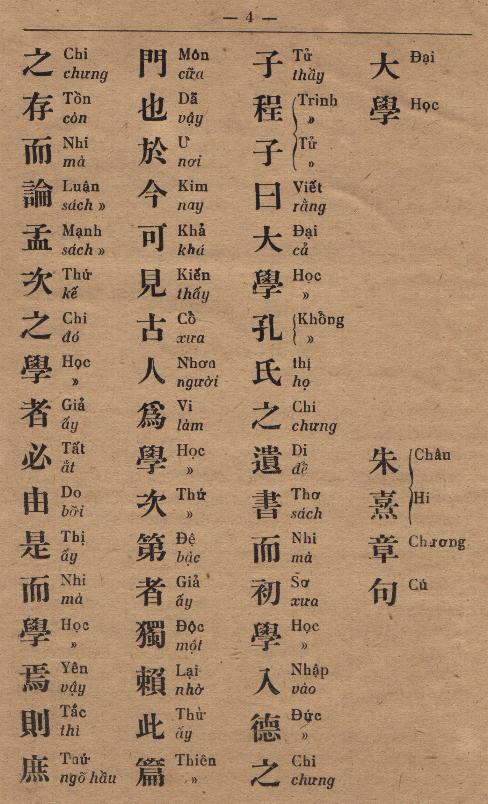 — 4 —
大 Đại
學 Học
朱 Châu
熹 Hi
章 Chương
句 Cú
子 Tử
thầy
程 Trình
»
子 Tử
»
曰 Viết
rằng
大 Đại
cả
學 Học
»
孔 Khổng
»
氏 thị
họ
之 Chi
chưng
遺 Di
để
書 Thơ
sách
而 Nhi
mà
初 Sơ
xưa
學 Học
»
入 Nhập
vào
德 Đức
»
之 Chi
chưng
門 Môn
cữa
也 Dã
vậy
於 Ư
nơi
今 Kim
nay
可 Khả
khá
見 Kiến
thấy
古 Cổ
xưa
人 Nhơn
người
爲 Vi
làm
學 Học
»
次 Thứ
»
第 Đệ
bậc
者 Giả
ấy
獨 Độc
một
賴 Lại
nhờ
此 Thử
ấy
篇 Thiên
»
之 Chi
chưng
存 Tồn
còn
而 Nhi
mà
論 Luận
sách »
孟 Mạnh
sách »
次 Thứ
kế
之 Chi
đó
學 Học
»
者 Giả
ấy
必 Tất
ắt
由 Do
bỡi
是 Thị
ấy
而 Nhi
mà
學 Học
»
焉 Yên
vậy
則 Tắc
thì
庶 Thứ
ngõ hầu